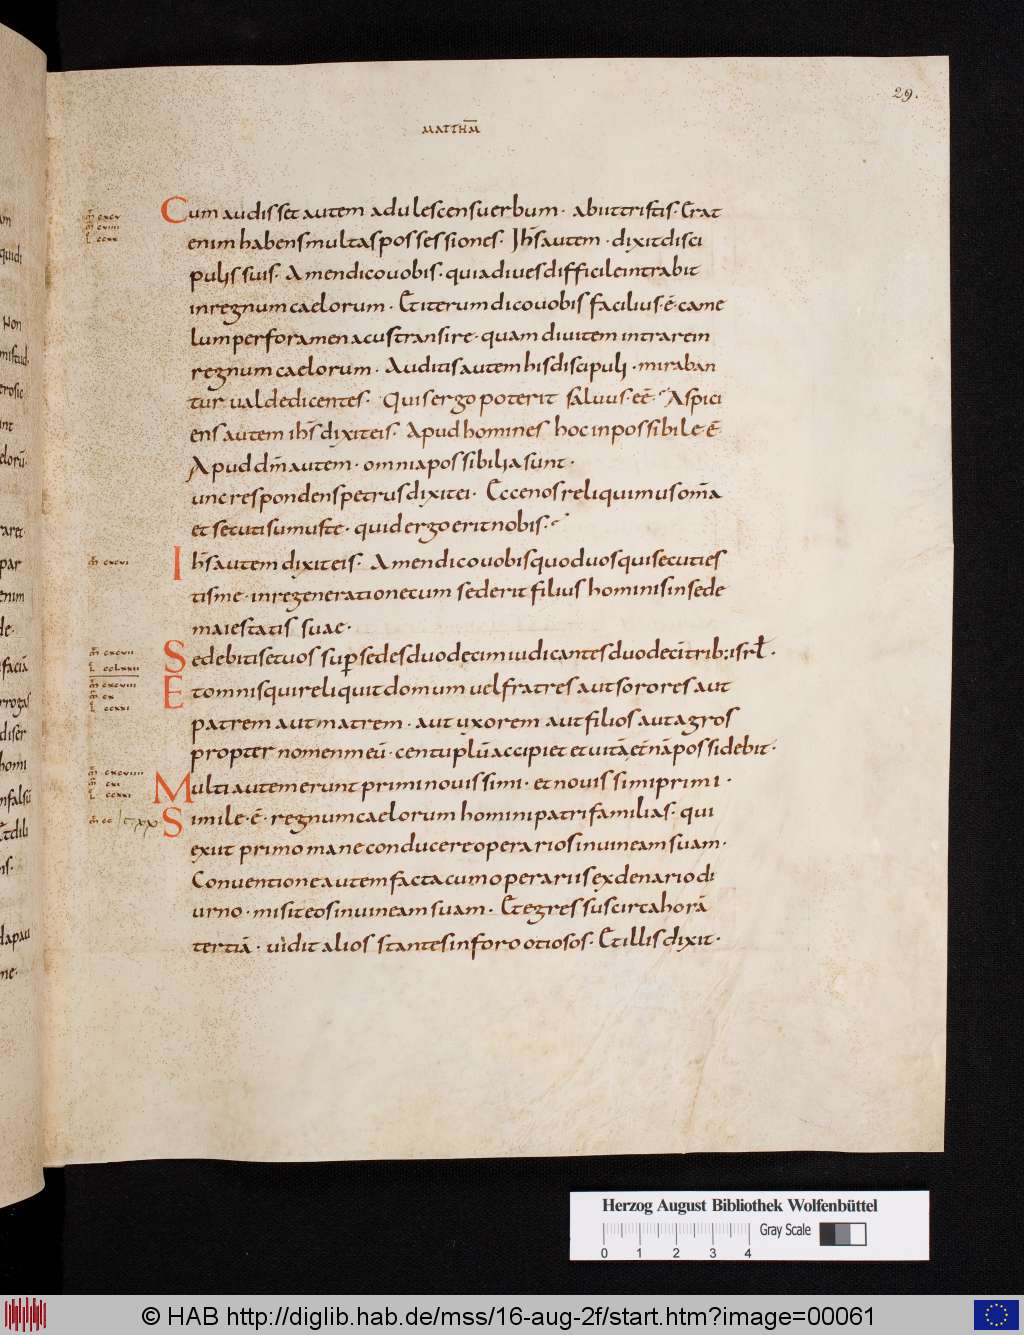 29.
MATTHM̄
Cum audisset autem adulescens uerbum · abiit tristis · Erat
enim habens multas possessiones · Ih̄s autem · dixit disci
pulis suis · Amen dico uobis · quia diues difficile intrabit
in regnum caelorum · Et iterum dico uobis facilius · ē · came
lum per foramen acus transire · quam diuitem intrare in
regnum caelorum · Auditis autem his discipuli · miraban
tur ualde dicentes · Quis ergo poterit saluus · eē · Aspici
ens autem ih̄s dixit eis · Apud homines hoc inpossibile · ē ·
Apud dm̄ autem · omnia possibilia sunt ·
unc respondens petrus dixit ei · Ecce nos reliquimus om̄a
et secuti sumus te · quid ergo erit nobis ·
Ih̄s autem dixit eis · Amen dico uobis quod uos qui secuti es
tis me · in regeneratione cum sederit filius hominis in sede
maiestatis suae ·
Sedebitis et uos sup sedes duodecim iudicantes duodecī trib: isrł ·
Et omnis qui reliquit domum uel fratres aut sorores aut
patrem aut matrem · aut uxorem aut filios aut agros
propter nomen meū · centuplū accipiet et uitā etnā possidebit ·
Multi autem erunt primi nouissimi · et nouissimi primi ·
Simile · ē · regnum caelorum homini patri familias · qui
exiit primo mane conducere operarios in uineam suam ·
Conuentione autem facta cum operariis ex denario di
urno · misit eos in uineam suam · Et egressus circa horā
tertiā · uidit alios stantes in foro otiosos · Et illis dixit ·
m̄ cxcv
m̄ cviiii
l̄ ccxx
m̄ cxcvi
m̄ cxcvii
l̄ cclxxii
m̄ cxcviii
m̄ cx
l̄ ccxxi
m̄ cxcviiii
m̄ cxi
l̄ ccxxi
m̄ cc
Herzog August Bibliothek Wolfenbüttel
Gray Scale
0 1 2 3 4
© HAB http://diglib.hab.de/mss/16-aug-2f/start.htm?image=00061